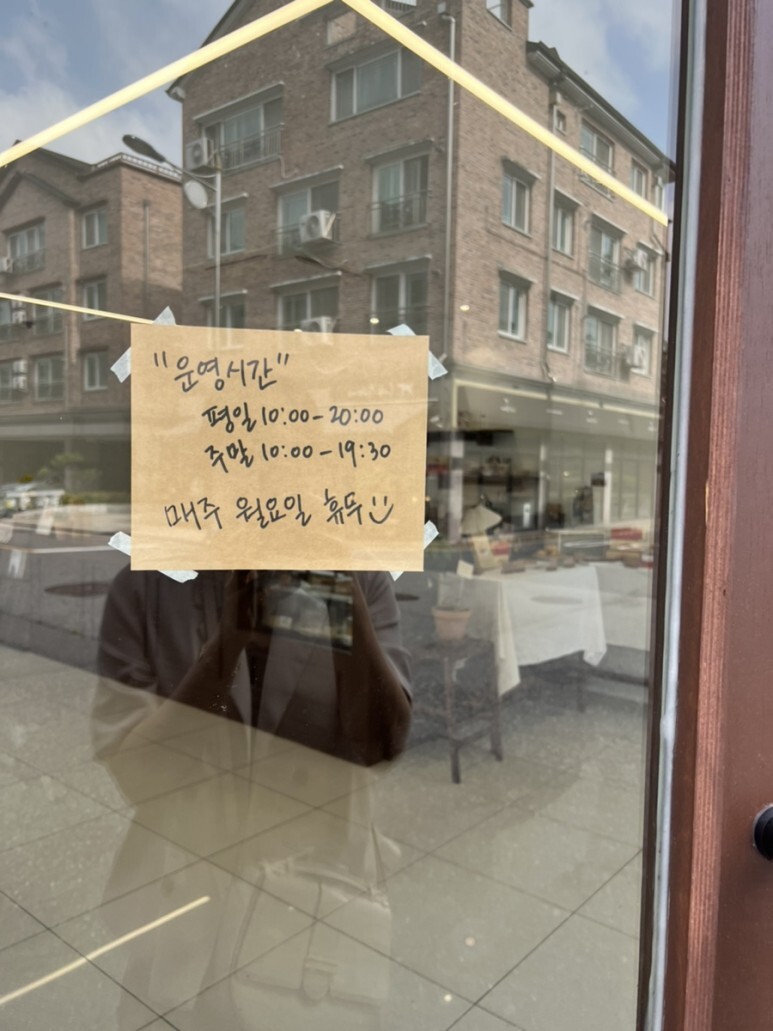 "운영시간"
평일 10:00-20:00
주말 10:00-19:30
매주 월요일 휴무